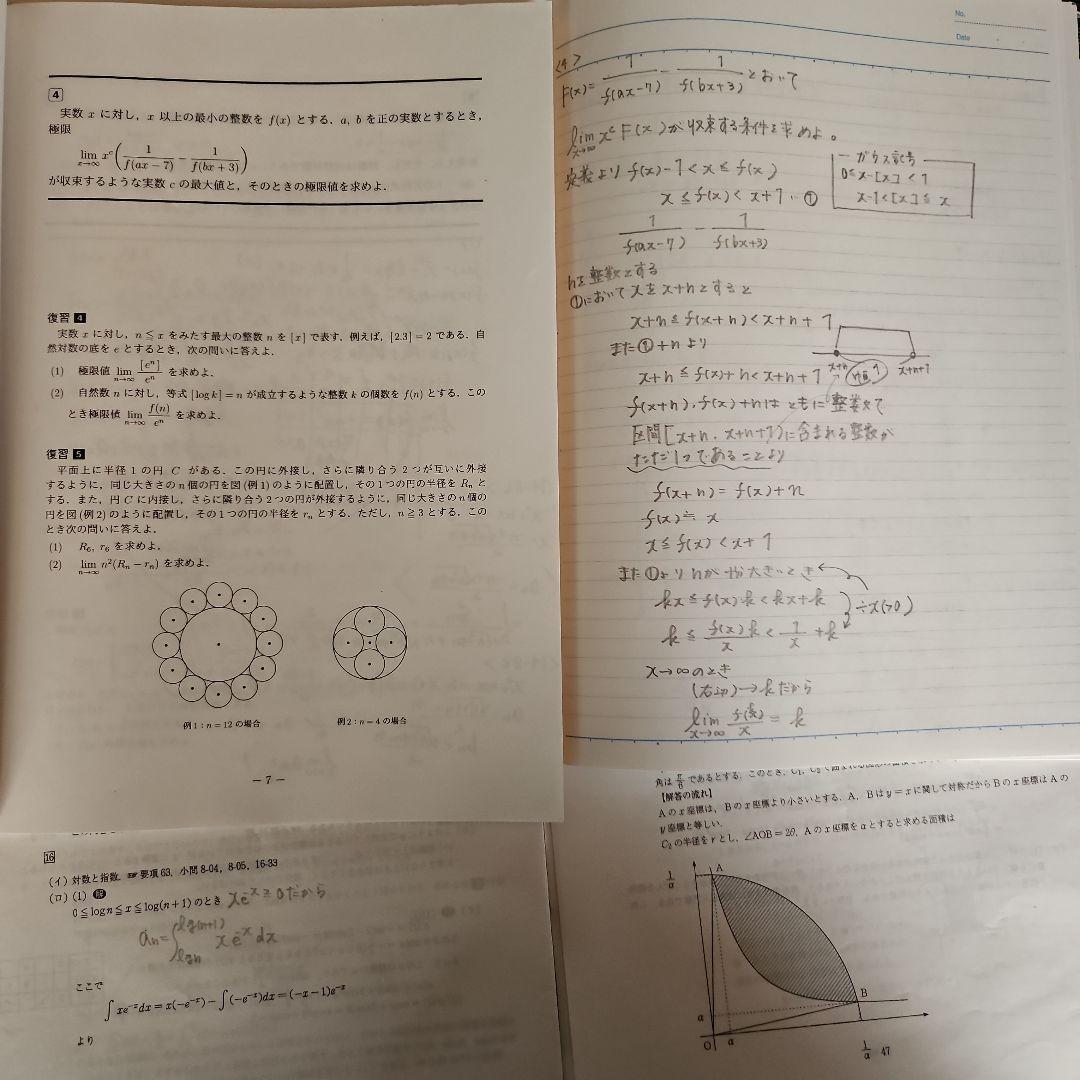 4
実数 x に対し，x 以上の最小の整数を f(x) とする．a, b を正の実数とするとき，
極限
lim x→∞ x^c ( 1/f(ax−7) − 1/f(bx+3) )
が収束するような実数 c の最大値と，そのときの極限値を求めよ．
復習 4
実数 x に対し，n ≦ x をみたす最大の整数 n を [x] で表す．例えば，[2.3] = 2 である．自
然対数の底を e とするとき，次の問いに答えよ．
(1) 極限値 lim n→∞ [e^n]/e^n を求めよ．
(2) 自然数 n に対し，等式 [log k] = n が成立するような整数 k の個数を f(n) とする．この
とき極限値 lim n→∞ f(n)/e^n を求めよ．
復習 5
平面上に半径 1 の円 C がある．この円に外接し，さらに隣り合う 2 つが互いに外接
するように，同じ大きさの n 個の円を図 (例 1) のように配置し，その 1 つの円の半径を R_n と
する．また，円 C に内接し，さらに隣り合う 2 つの円が外接するように，同じ大きさの n 個の
円を図 (例 2) のように配置し，その 1 つの円の半径を r_n とする．ただし，n ≧ 3 とする．この
とき次の問いに答えよ．
(1) R_6, r_6 を求めよ．
(2) lim n→∞ n^2(R_n − r_n) を求めよ．
例 1 : n = 12 の場合
例 2 : n = 4 の場合
− 7 −
No.
Date
<4>
F(x) = 1/f(ax−7) − 1/f(bx+3) とおいて
lim x→∞ x^c F(x) が収束する条件を求めよ。
定義より f(x)−1 < x ≦ f(x)
x ≦ f(x) < x+1 ・①
ガウス記号
0≦x−[x]<1
x−1<[x]≦x
1/f(ax−7) − 1/f(bx+3)
nを整数とする
①において xを x+nとすると
x+n ≦ f(x+n) < x+n+1
また ①+n より
x+n ≦ f(x)+n < x+n+1
x+n 幅1 x+n+1
f(x+n), f(x)+n は ともに整数で
区間[x+n, x+n+1)に含まれる整数が
ただ1つであることより
f(x+n) = f(x)+n
f(x)≒x
x ≦ f(x) < x+1
また ①より が 大きいとき
kx ≦ f(x)k < kx+k
÷x(>0)
k ≦ f(x)k/x < 1/x + k
x→∞のとき
(右辺)→kだから
lim x→∞ f(k)/x = k
16
(イ) 対数と指数．☞ 要項 63，小問 8-04，8-05，16-33
(ロ) (1) 解
0 ≦ log n ≦ x ≦ log(n+1) のとき xe^−x ≧ 0 だから
a_n = ∫_{log n}^{log(n+1)} xe^−x dx
ここで
∫ xe^−x dx = x(−e^−x) − ∫ (−e^−x)dx = (−x−1)e^−x
より
角は π/6 であるとする．このとき，C_1, C_2
【解答の流れ】
A の x 座標は，B の x 座標より小さいとする．A，B は y = x に関して対称だから B の x 座標は A の
y 座標と等しい．
C_2 の半径を r とし，∠AOB = 2θ，A の x 座標を a とすると求める面積は
1/a
A
a
B
O
a
1/a
47